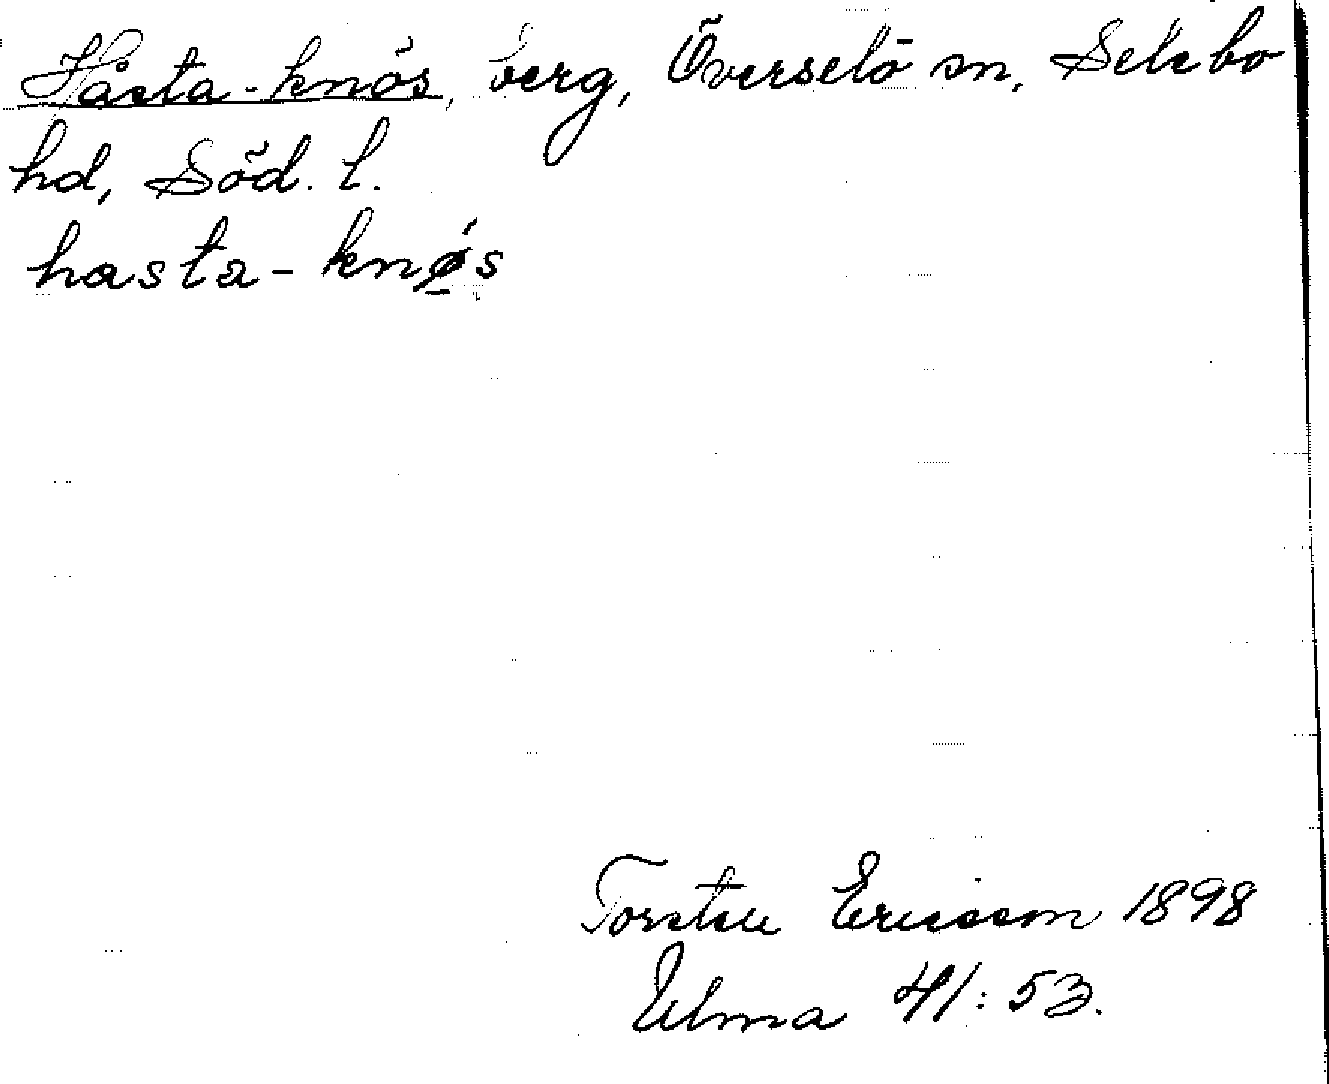 Hästa-knös, berg, Överselö sn, Selebo
hd, Söd. l.
hasta-knø̱s
Torsten Ericsson 1898
Ulma 41:53.